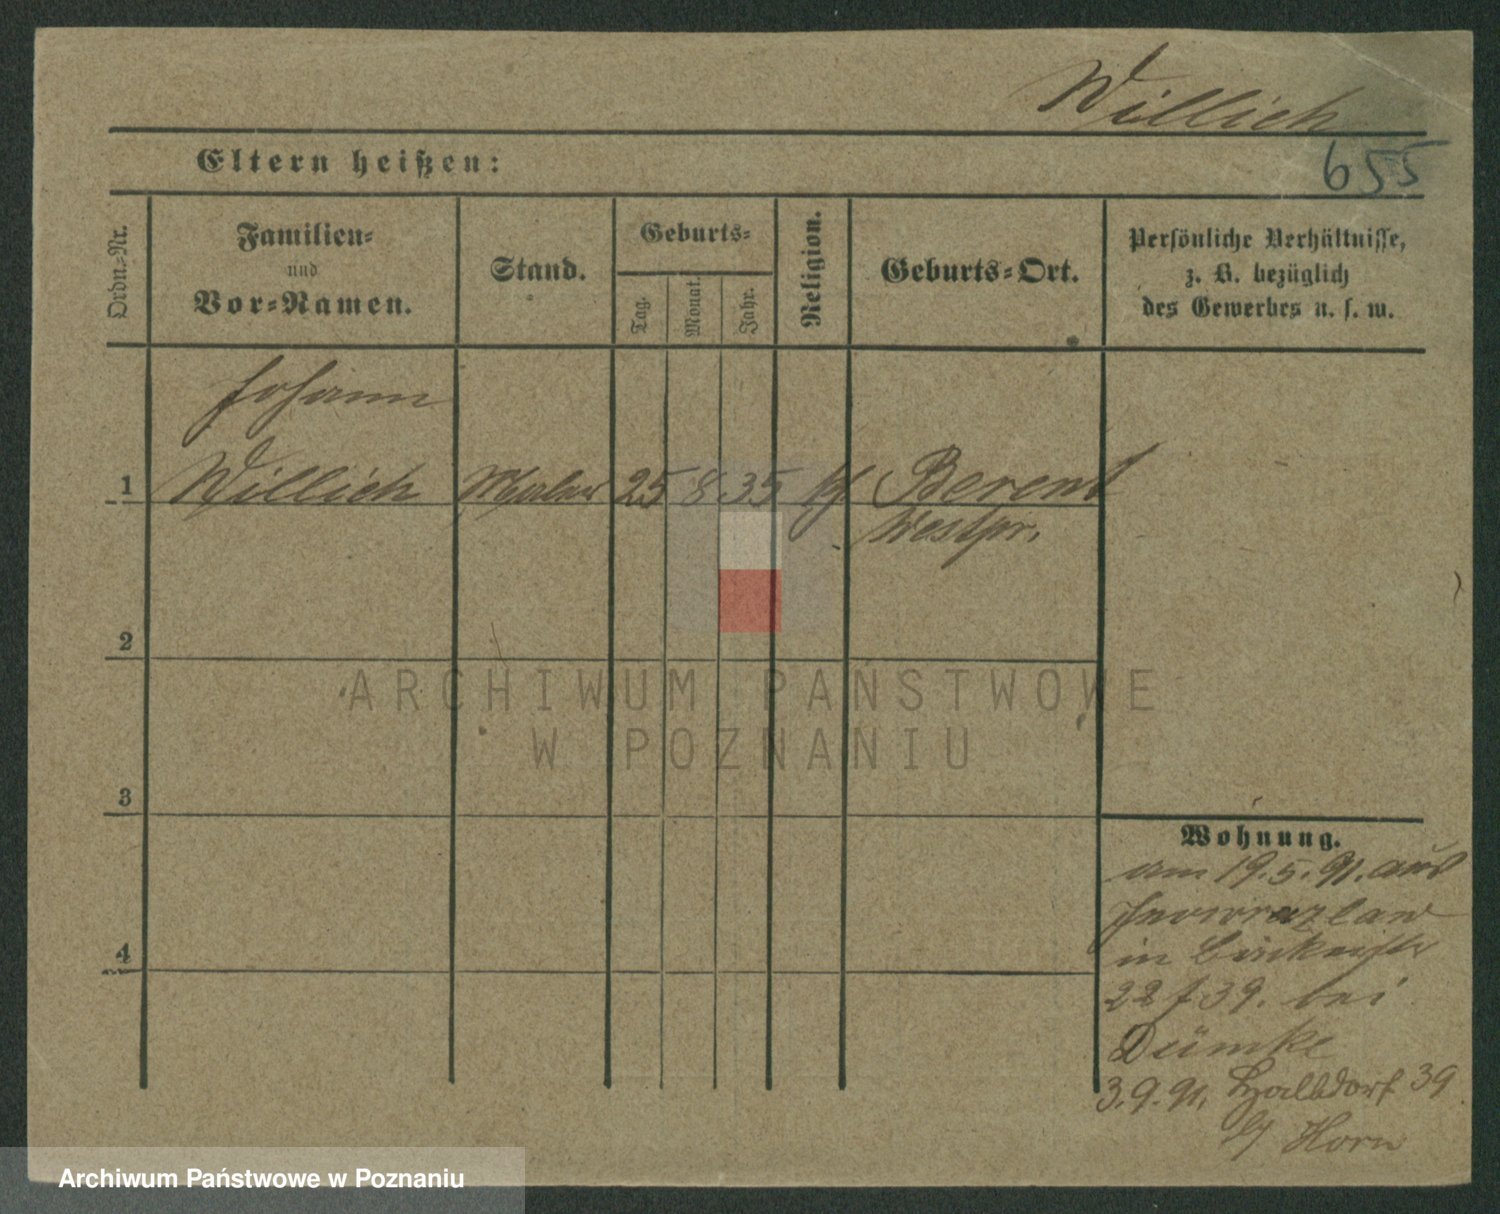 Willich
Eltern heißen:
655
Ordn.-Nr.
Familien-
und
Vor-Namen.
Stand.
Geburts-
Tag.
Monat.
Jahr.
Religion.
Geburts-Ort.
Persönliche Verhältnisse,
z. B. bezüglich
des Gewerbes u. s. w.
Johann
1 Willich Maler 25 8 35 kf Berent
Westpr.
2
ARCHIWUM PAŃSTWOWE
W POZNANIU
3
Wohnung.
am 19.5.91. aus
Inowrazlaw
4
in
22/39. bei
Dümke
3.9.91. Halbdorf 39
b/ Horn
Archiwum Państwowe w Poznaniu